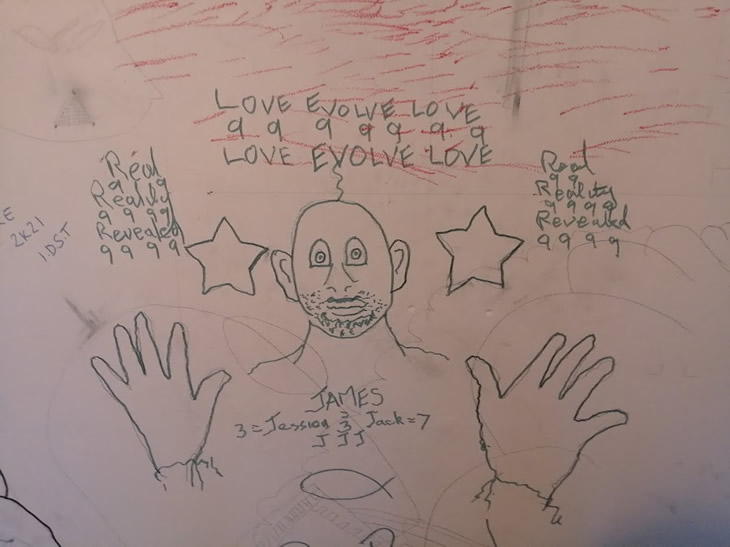 LOVE EVOLVE LOVE
9 9 9 9 9 9 9
LOVE EVOLVE LOVE
Real
9 9
Reality
9 9 9 9
Revealed
9 9 9 9
Real
9 9
Reality
9 9 9 9
Revealed
9 9 9 9
2K21
1DST
JAMES
3
3 = Jession 3 Jack = 7
J J J